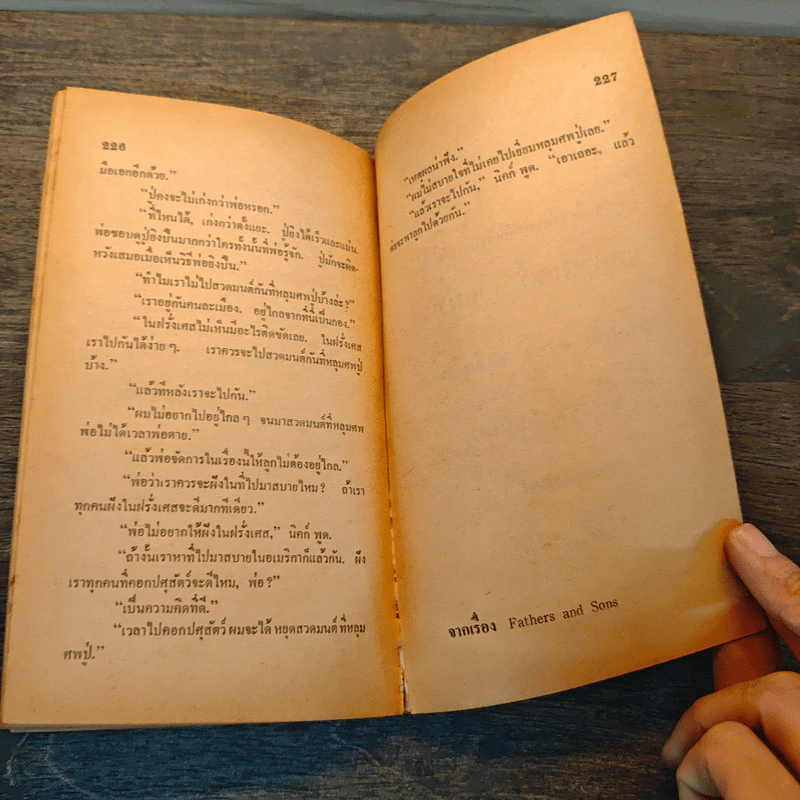 226
มือเอกอีกด้วย.”
“ปู่คงจะไม่เก่งกว่าพ่อหรอก.”
“ที่ไหนได้, เก่งกว่าตั้งแยะ. ปู่ยิงได้เร็วและแม่น.
พ่อชอบดูปู่ยิงปืนมากกว่าใครทั้งนั้นที่พ่อรู้จัก. ปู่มักจะผิด-
หวังเสมอเมื่อเห็นวิธีพ่อยิงปืน.”
“ทำไมเราไม่ไปสวดมนต์กันที่หลุมศพปู่บ้างล่ะ?”
“เราอยู่กันคนละเมือง. อยู่ไกลจากที่นี่เป็นกอง.”
“ในฝรั่งเศสไม่เห็นมีอะไรติดขัดเลย. ในฝรั่งเศส
เราไปกันได้ง่าย ๆ. เราควรจะไปสวดมนต์กันที่หลุมศพปู่
บ้าง.”
“แล้วทีหลังเราจะไปกัน.”
“ผมไม่อยากไปอยู่ไกล ๆ จนมาสวดมนต์ที่หลุมศพ
พ่อไม่ได้เวลาพ่อตาย.”
“แล้วพ่อจัดการในเรื่องนี้ให้ลูกไม่ต้องอยู่ไกล.”
“พ่อว่าเราควรจะฝังในที่ไปมาสบายไหม? ถ้าเรา
ทุกคนฝังในฝรั่งเศสจะดีมากทีเดียว.”
“พ่อไม่อยากให้ฝังในฝรั่งเศส,” นิคก์ พูด.
“ถ้างั้นเราหาที่ไปมาสบายในอเมริกาก็แล้วกัน. ฝัง
เราทุกคนที่คอกปศุสัตว์จะดีไหม, พ่อ?”
“เป็นความคิดที่ดี.”
“เวลาไปคอกปศุสัตว์ ผมจะได้ หยุดสวดมนต์ ที่หลุม
ศพปู่.”
227
“เหตุผลน่าฟัง.”
“ผมไม่สบายใจที่ไม่เคยไปเยี่ยมหลุมศพปู่เลย.”
“แล้วเราจะไปกัน,” นิคก์ พูด. “เอาเถอะ, แล้ว
พ่อจะพาลูกไปด้วยกัน.”
จากเรื่อง Fathers and Sons